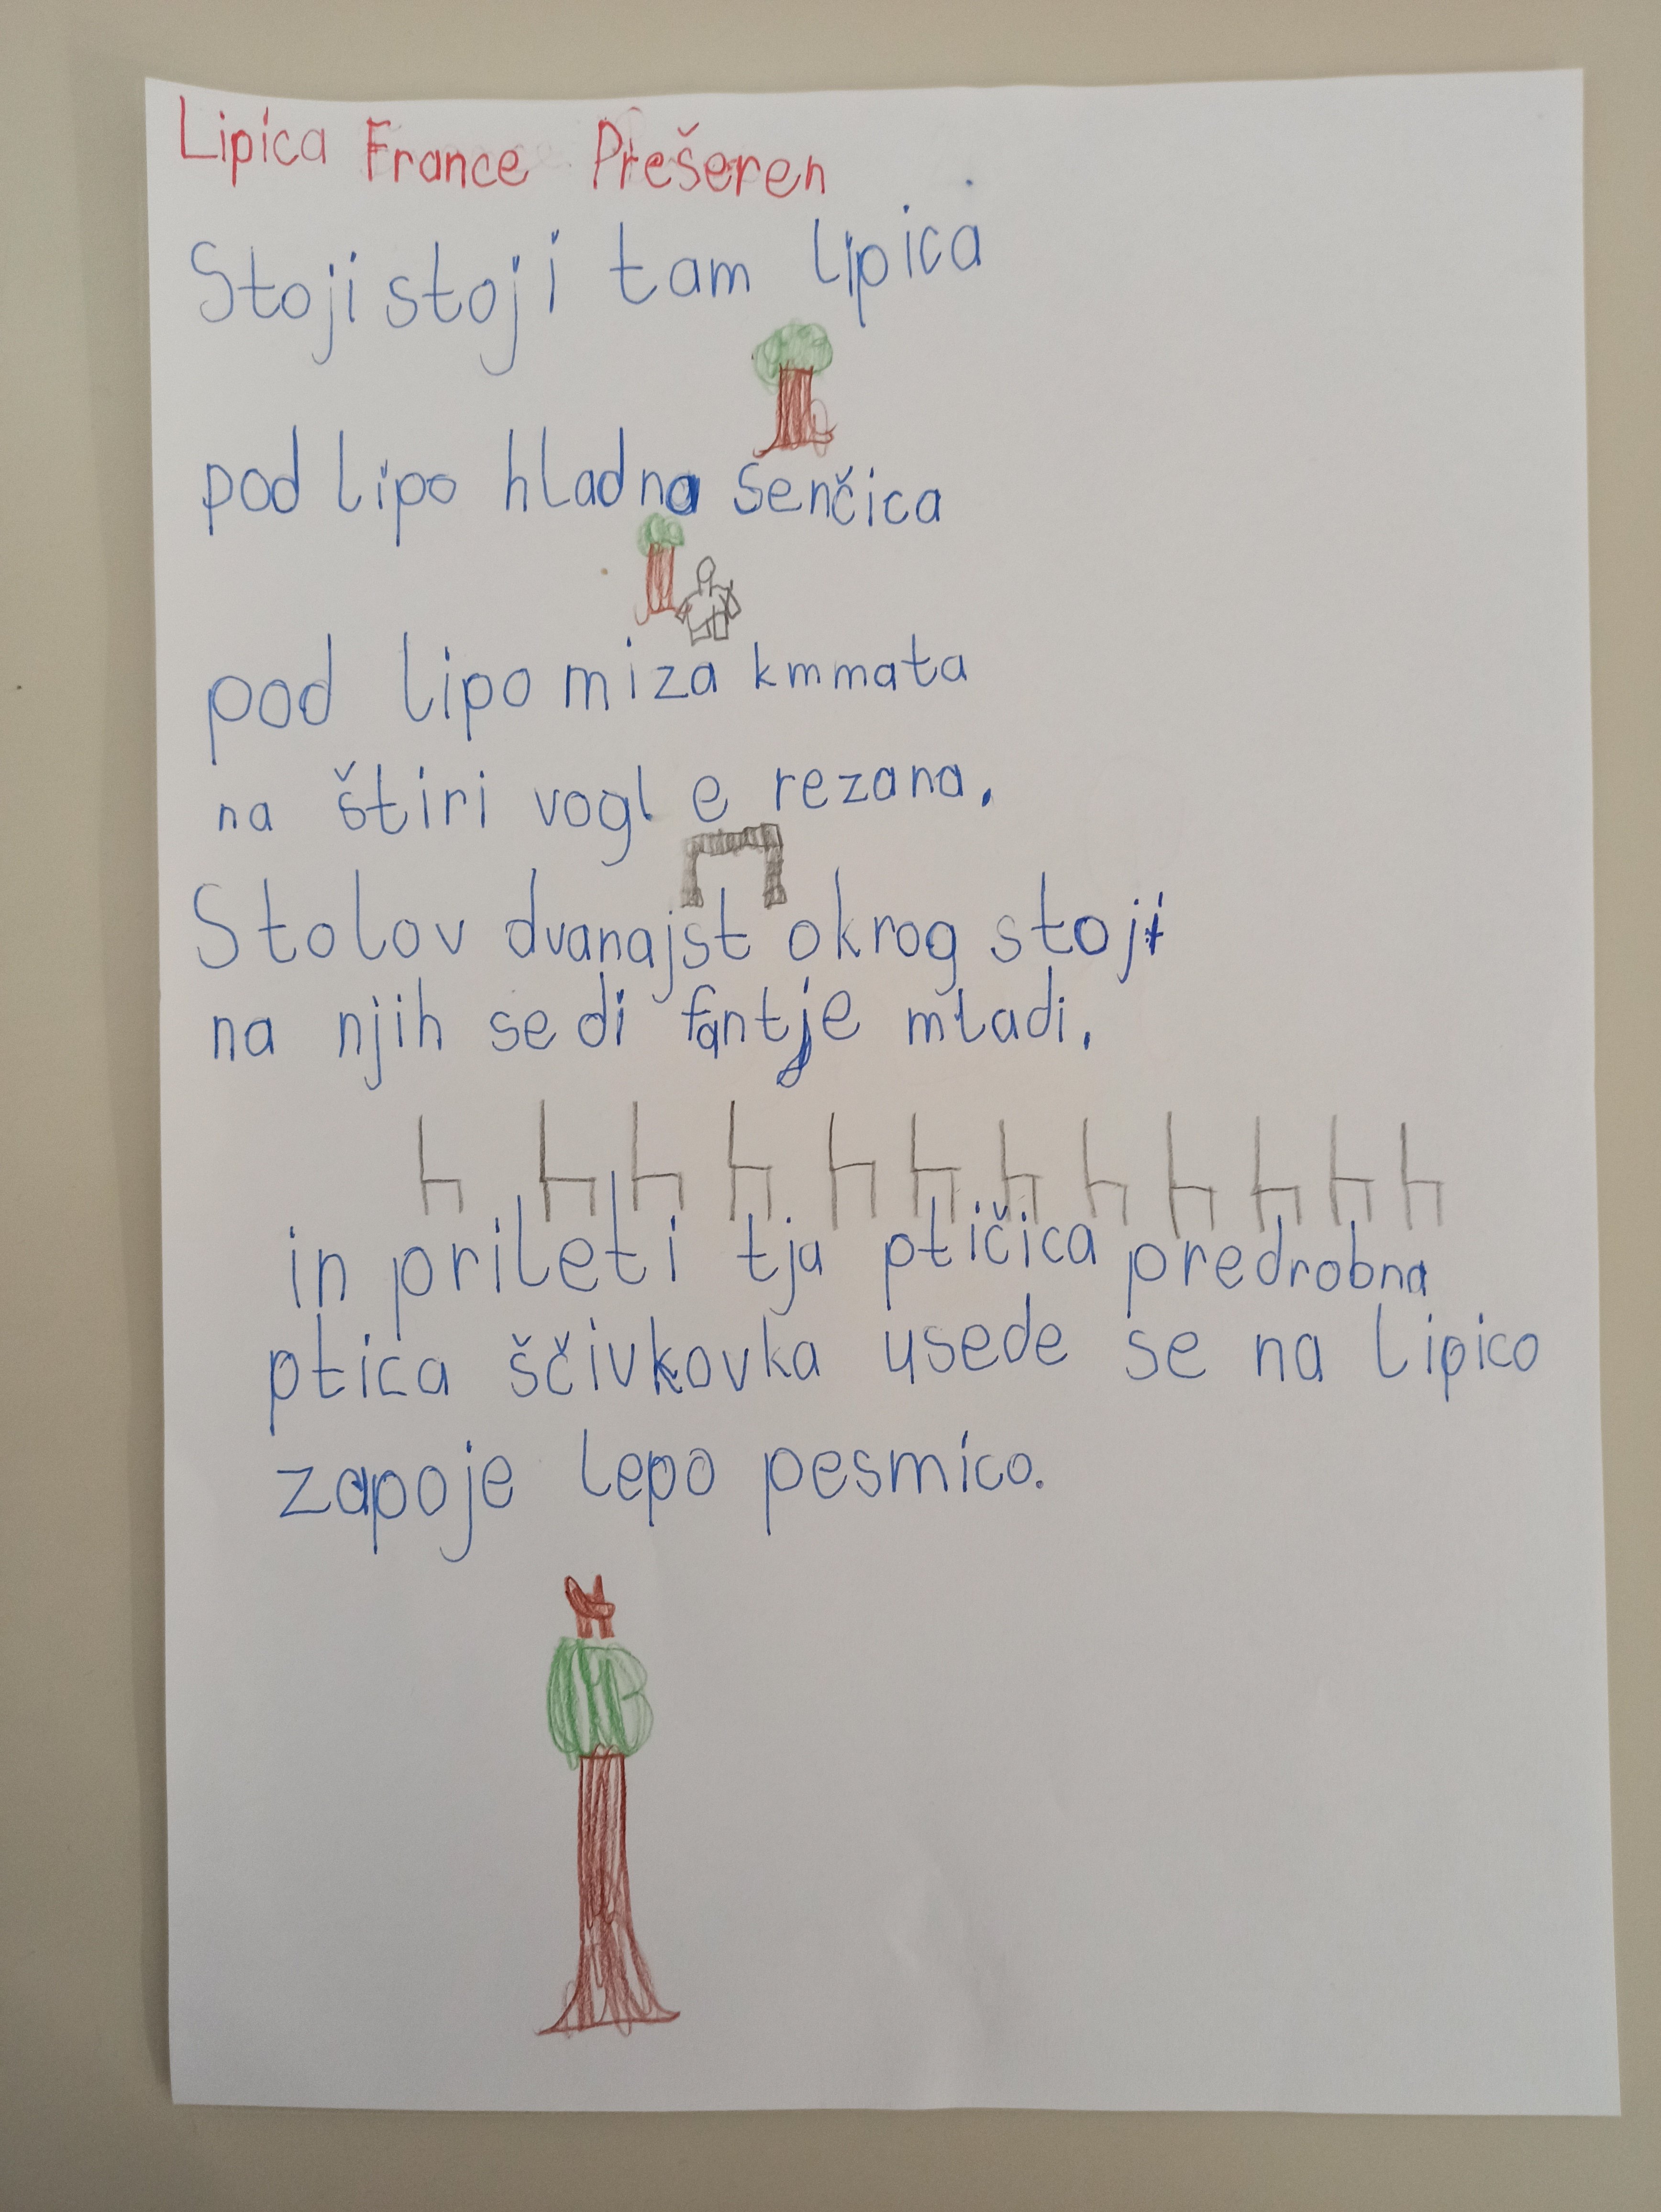 Lipica France Prešeren
Stoji stoji tam lipica
pod lipo hladna senčica
pod lipo miza kmmata
na štiri vogle rezana.
Stolov dvanajst okrog stoji
na njih sedi fantje mladi.
in prileti tja ptičica predrobna
ptica ščivkovka usede se na lipico
zapoje lepo pesmico.